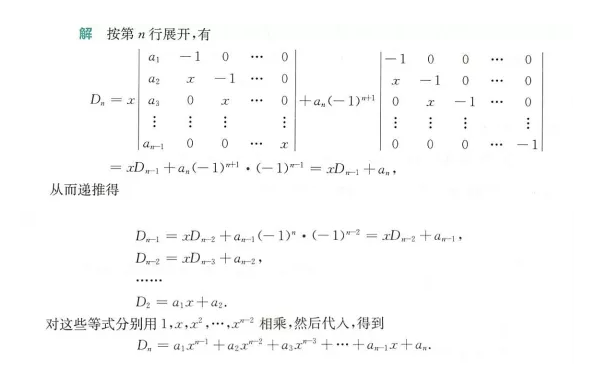 解 按第 n 行展开,有
D_n = x | a_1 -1 0 … 0 | + a_n(-1)^{n+1} | -1 0 0 … 0 |
| a_2 x -1 … 0 | | x -1 0 … 0 |
| a_3 0 x … 0 | | 0 x -1 … 0 |
| ⋮ ⋮ ⋮ ⋮ | | ⋮ ⋮ ⋮ ⋮ |
| a_{n-1} 0 0 … x | | 0 0 0 … -1 |
= xD_{n-1} + a_n(-1)^{n+1} · (-1)^{n-1} = xD_{n-1} + a_n,
从而递推得
D_{n-1} = xD_{n-2} + a_{n-1}(-1)^n · (-1)^{n-2} = xD_{n-2} + a_{n-1},
D_{n-2} = xD_{n-3} + a_{n-2},
……
D_2 = a_1x + a_2.
对这些等式分别用 1,x,x^2,…,x^{n-2} 相乘,然后代入,得到
D_n = a_1x^{n-1} + a_2x^{n-2} + a_3x^{n-3} + … + a_{n-1}x + a_n.